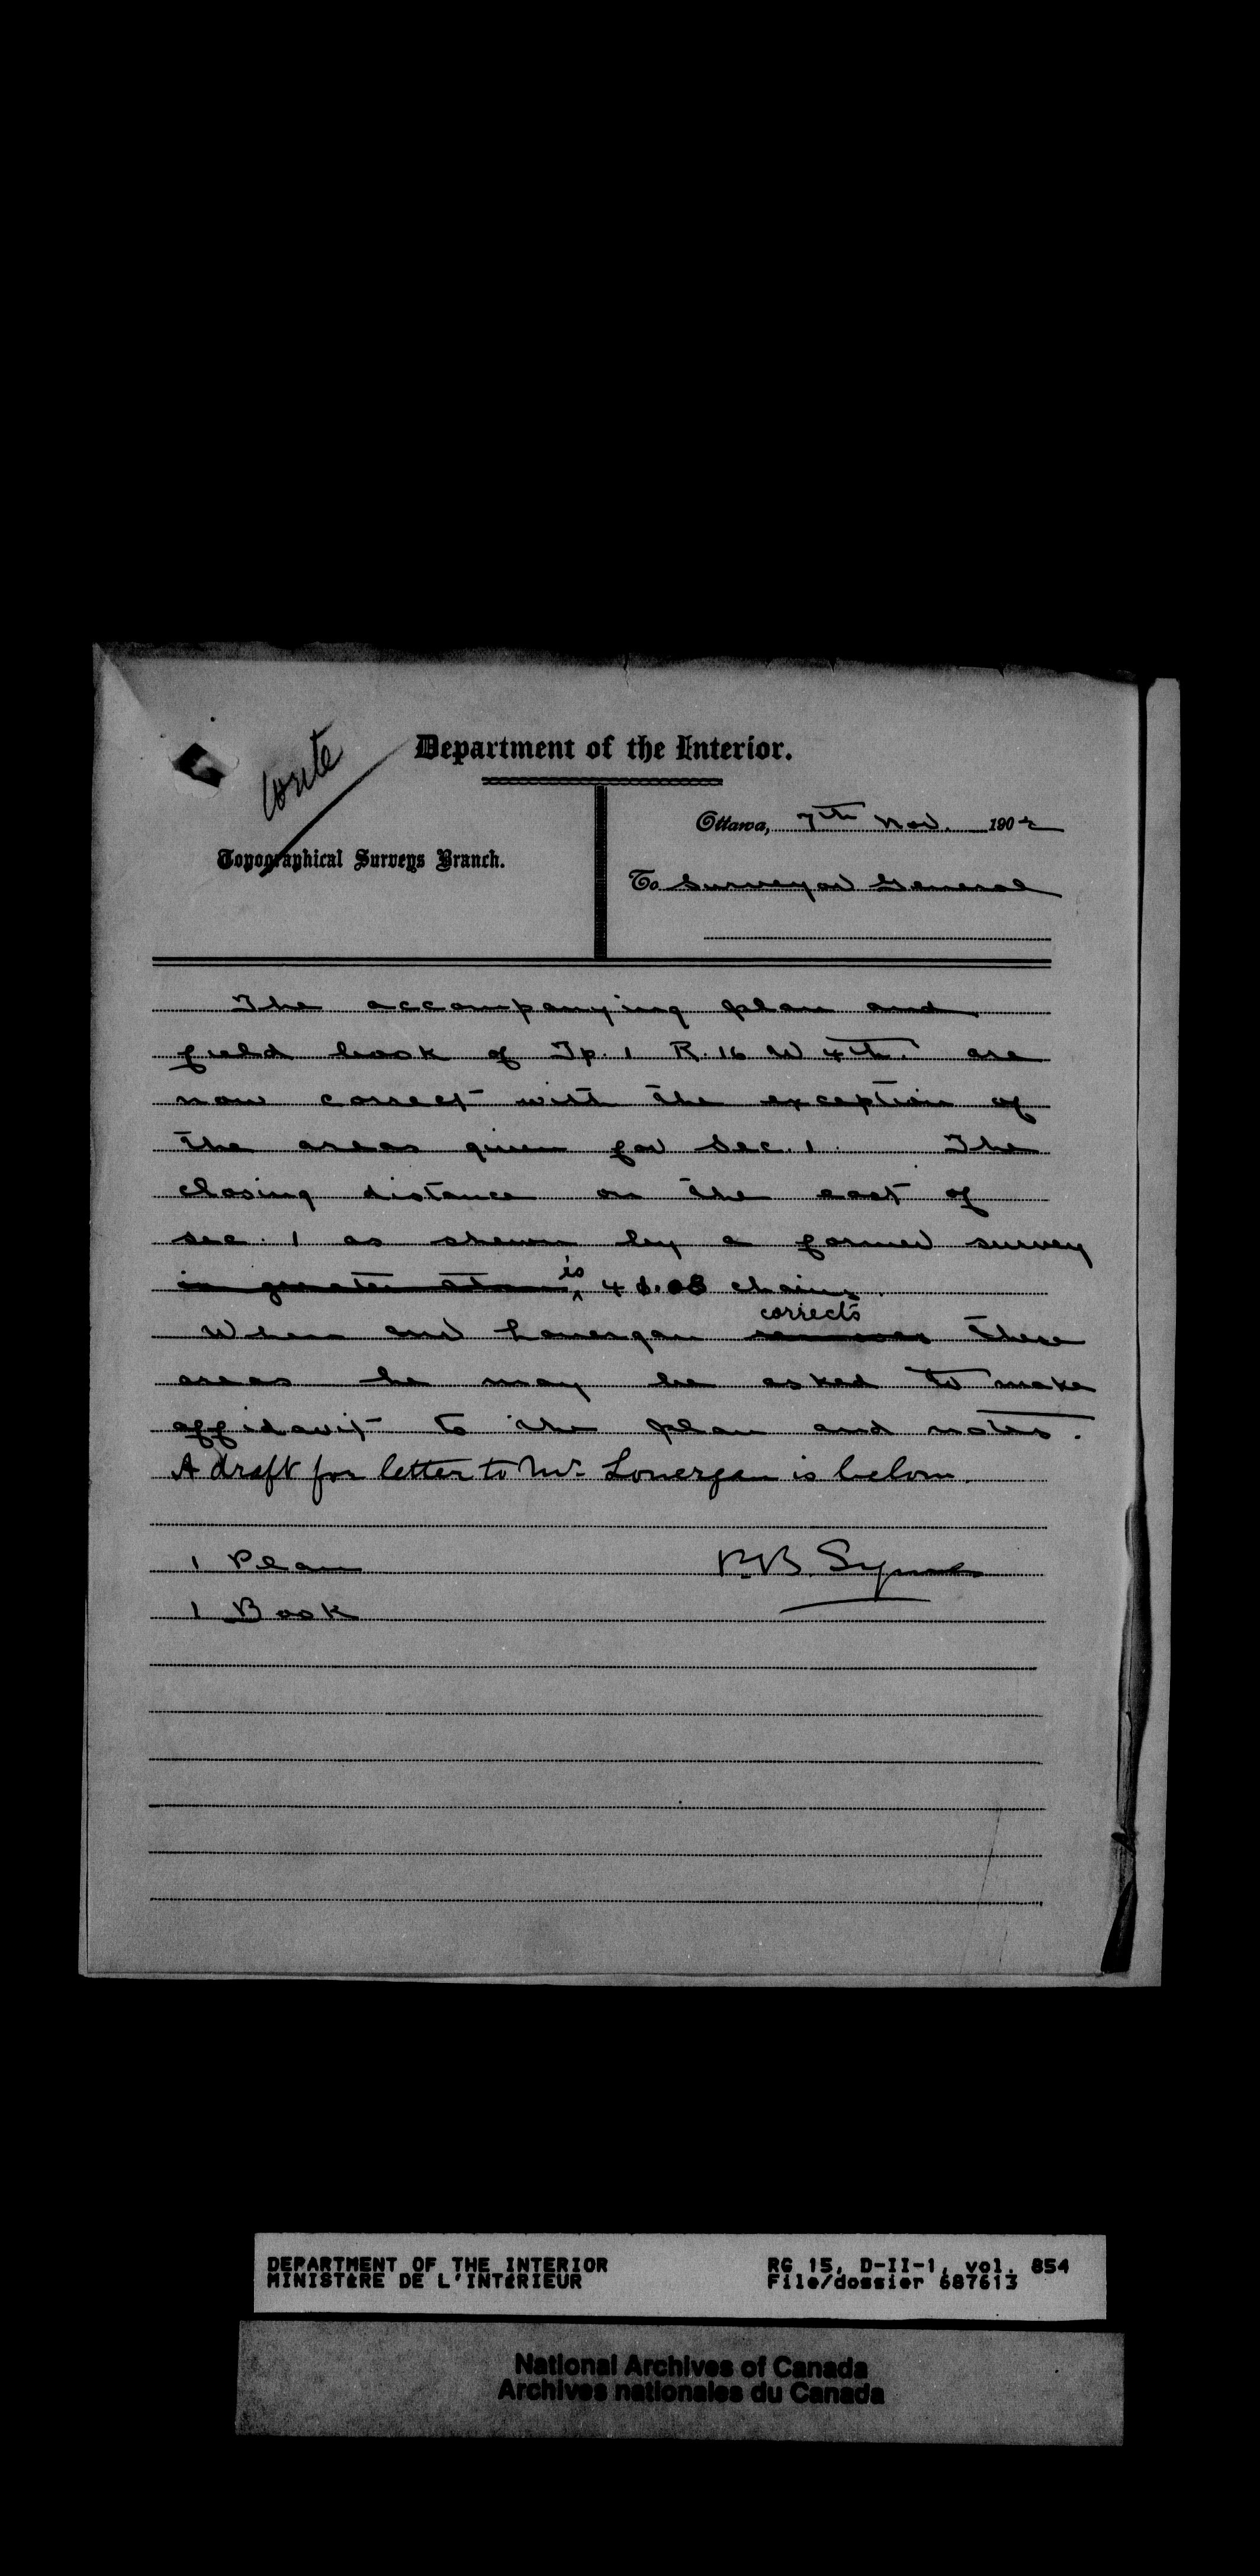 write
Department of the Interior.
Ottawa, 7th Nov. 1902
Topographical Surveys Branch.
To Surveyor General
The accompanying plan and
field book of Tp. 1 R. 16 W 4th. are
now correct with the exception of
the areas given for Sec. 1. The
closing distance on the east of
sec. 1 as shewn by a former survey
in greater than is chains.
When Lonergan corrects these
areas he may be asked to make
affidavit to the plan and notes.
A draft for letter to Mr. Lonergan is below.
1 Plan
P.B. Symes
1 Book
DEPARTMENT OF THE INTERIOR
MINISTÈRE DE L'INTÉRIEUR
RG 15, D-II-1, vol. 854
File/dossier 687613
National Archives of Canada
Archives nationales du Canada